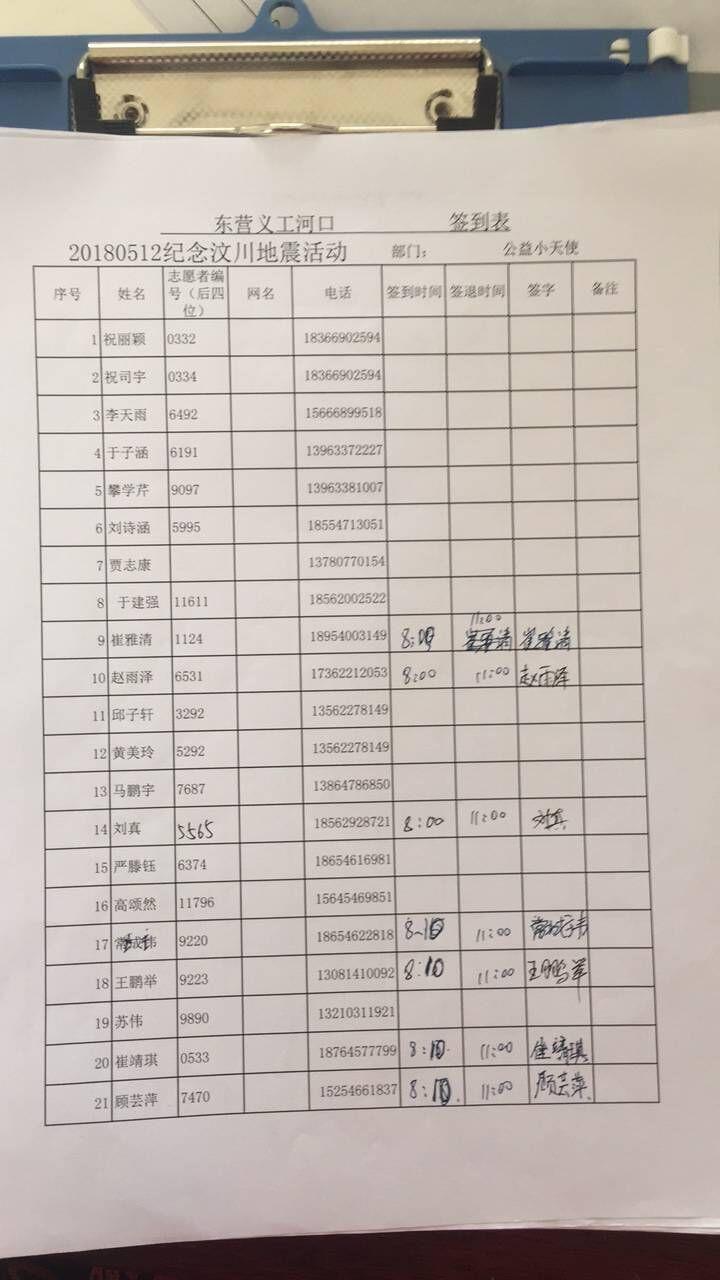 东营义工河口 签到表
20180512纪念汶川地震活动 部门： 公益小天使
序号 姓名 志愿者编号（后四位） 网名 电话 签到时间 签退时间 签字 备注
1 祝丽颖 0332 18366902594
2 祝司宇 0334 18366902594
3 李天雨 6492 15666899518
4 于子涵 6191 13963372227
5 攀学芹 9097 13963381007
6 刘诗涵 5995 18554713051
7 贾志康 13780770154
8 于建强 11611 18562002522
9 崔雅清 1124 18954003149 8:00 11:00 崔雅清
10 赵雨泽 6531 17362212053 8:00 11:00 赵雨泽
11 邱子轩 3292 13562278149
12 黄美玲 5292 13562278149
13 马鹏宇 7687 13864786850
14 刘真 5565 18562928721 8:00 11:00 刘真
15 严滕钰 6374 18654616981
16 高颂然 11796 15645469851
17 9220 18654622818 8~10 11:00
18 王鹏举 9223 13081410092 8:10 11:00 王鹏举
19 苏伟 9890 13210311921
20 崔靖琪 0533 18764577799 8:10 11:00 崔靖琪
21 顾芸萍 7470 15254661837 8:10 11:00 顾芸萍